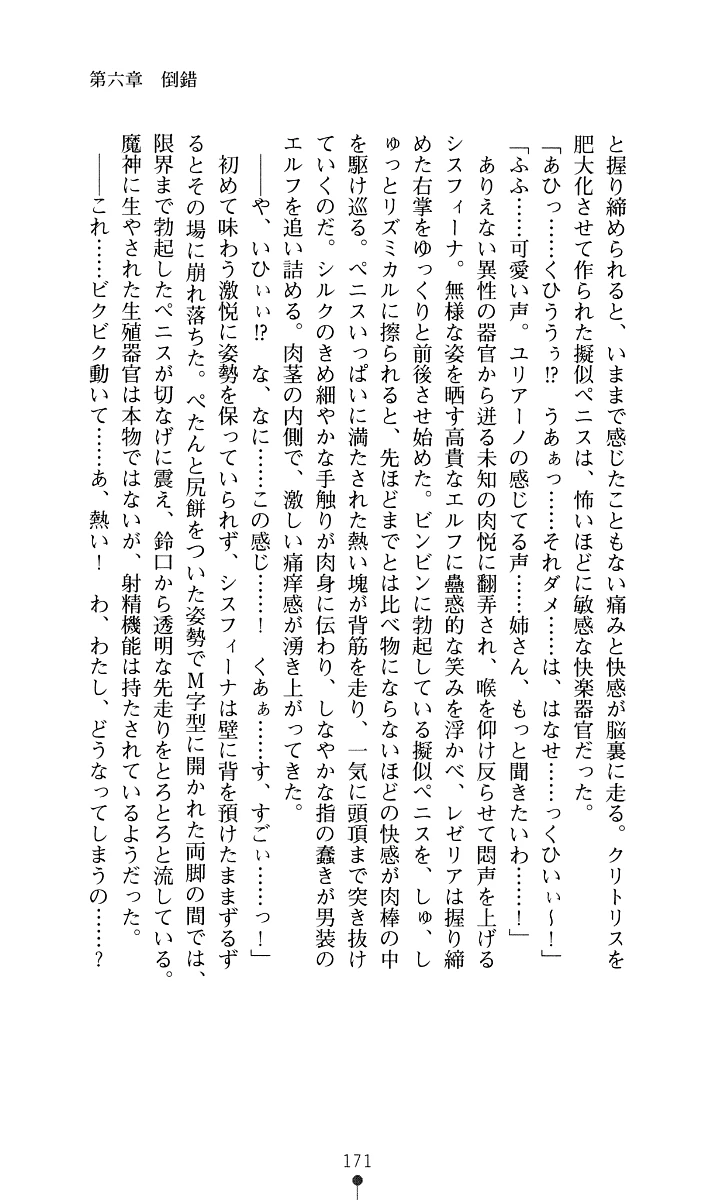 第六章　倒錯
と握り締められると、いままで感じたこともない痛みと快感が脳裏に走る。クリトリスを
肥大化させて作られた擬似ペニスは、怖いほどに敏感な快楽器官だった。
「あひっ……くひううぅ!?　うあぁっ……それダメ……は、はなせ……っくひいぃ～！」
「ふふ……可愛い声。ユリアーノの感じてる声……姉さん、もっと聞きたいわ……！」
　ありえない異性の器官から迸る未知の肉悦に翻弄され、喉を仰け反らせて悶声を上げる
シスフィーナ。無様な姿を晒す高貴なエルフに蠱惑的な笑みを浮かべ、レゼリアは握り締
めた右掌をゆっくりと前後させ始めた。ビンビンに勃起している擬似ペニスを、しゅ、し
ゅっとリズミカルに擦られると、先ほどまでとは比べ物にならないほどの快感が肉棒の中
を駆け巡る。ペニスいっぱいに満たされた熱い塊が背筋を走り、一気に頭頂まで突き抜け
ていくのだ。シルクのきめ細やかな手触りが肉身に伝わり、しなやかな指の蠢きが男装の
エルフを追い詰める。肉茎の内側で、激しい痛痒感が湧き上がってきた。
　――や、いひぃぃ!?　な、なに……この感じ……！　くあぁ……す、すごぃ……っ！」
　初めて味わう激悦に姿勢を保っていられず、シスフィーナは壁に背を預けたままずるず
るとその場に崩れ落ちた。ぺたんと尻餅をついた姿勢でＭ字型に開かれた両脚の間では、
限界まで勃起したペニスが切なげに震え、鈴口から透明な先走りをとろとろと流している。
魔神に生やされた生殖器官は本物ではないが、射精機能は持たされているようだった。
　――これ……ビクビク動いて……あ、熱い！　わ、わたし、どうなってしまうの……？
171